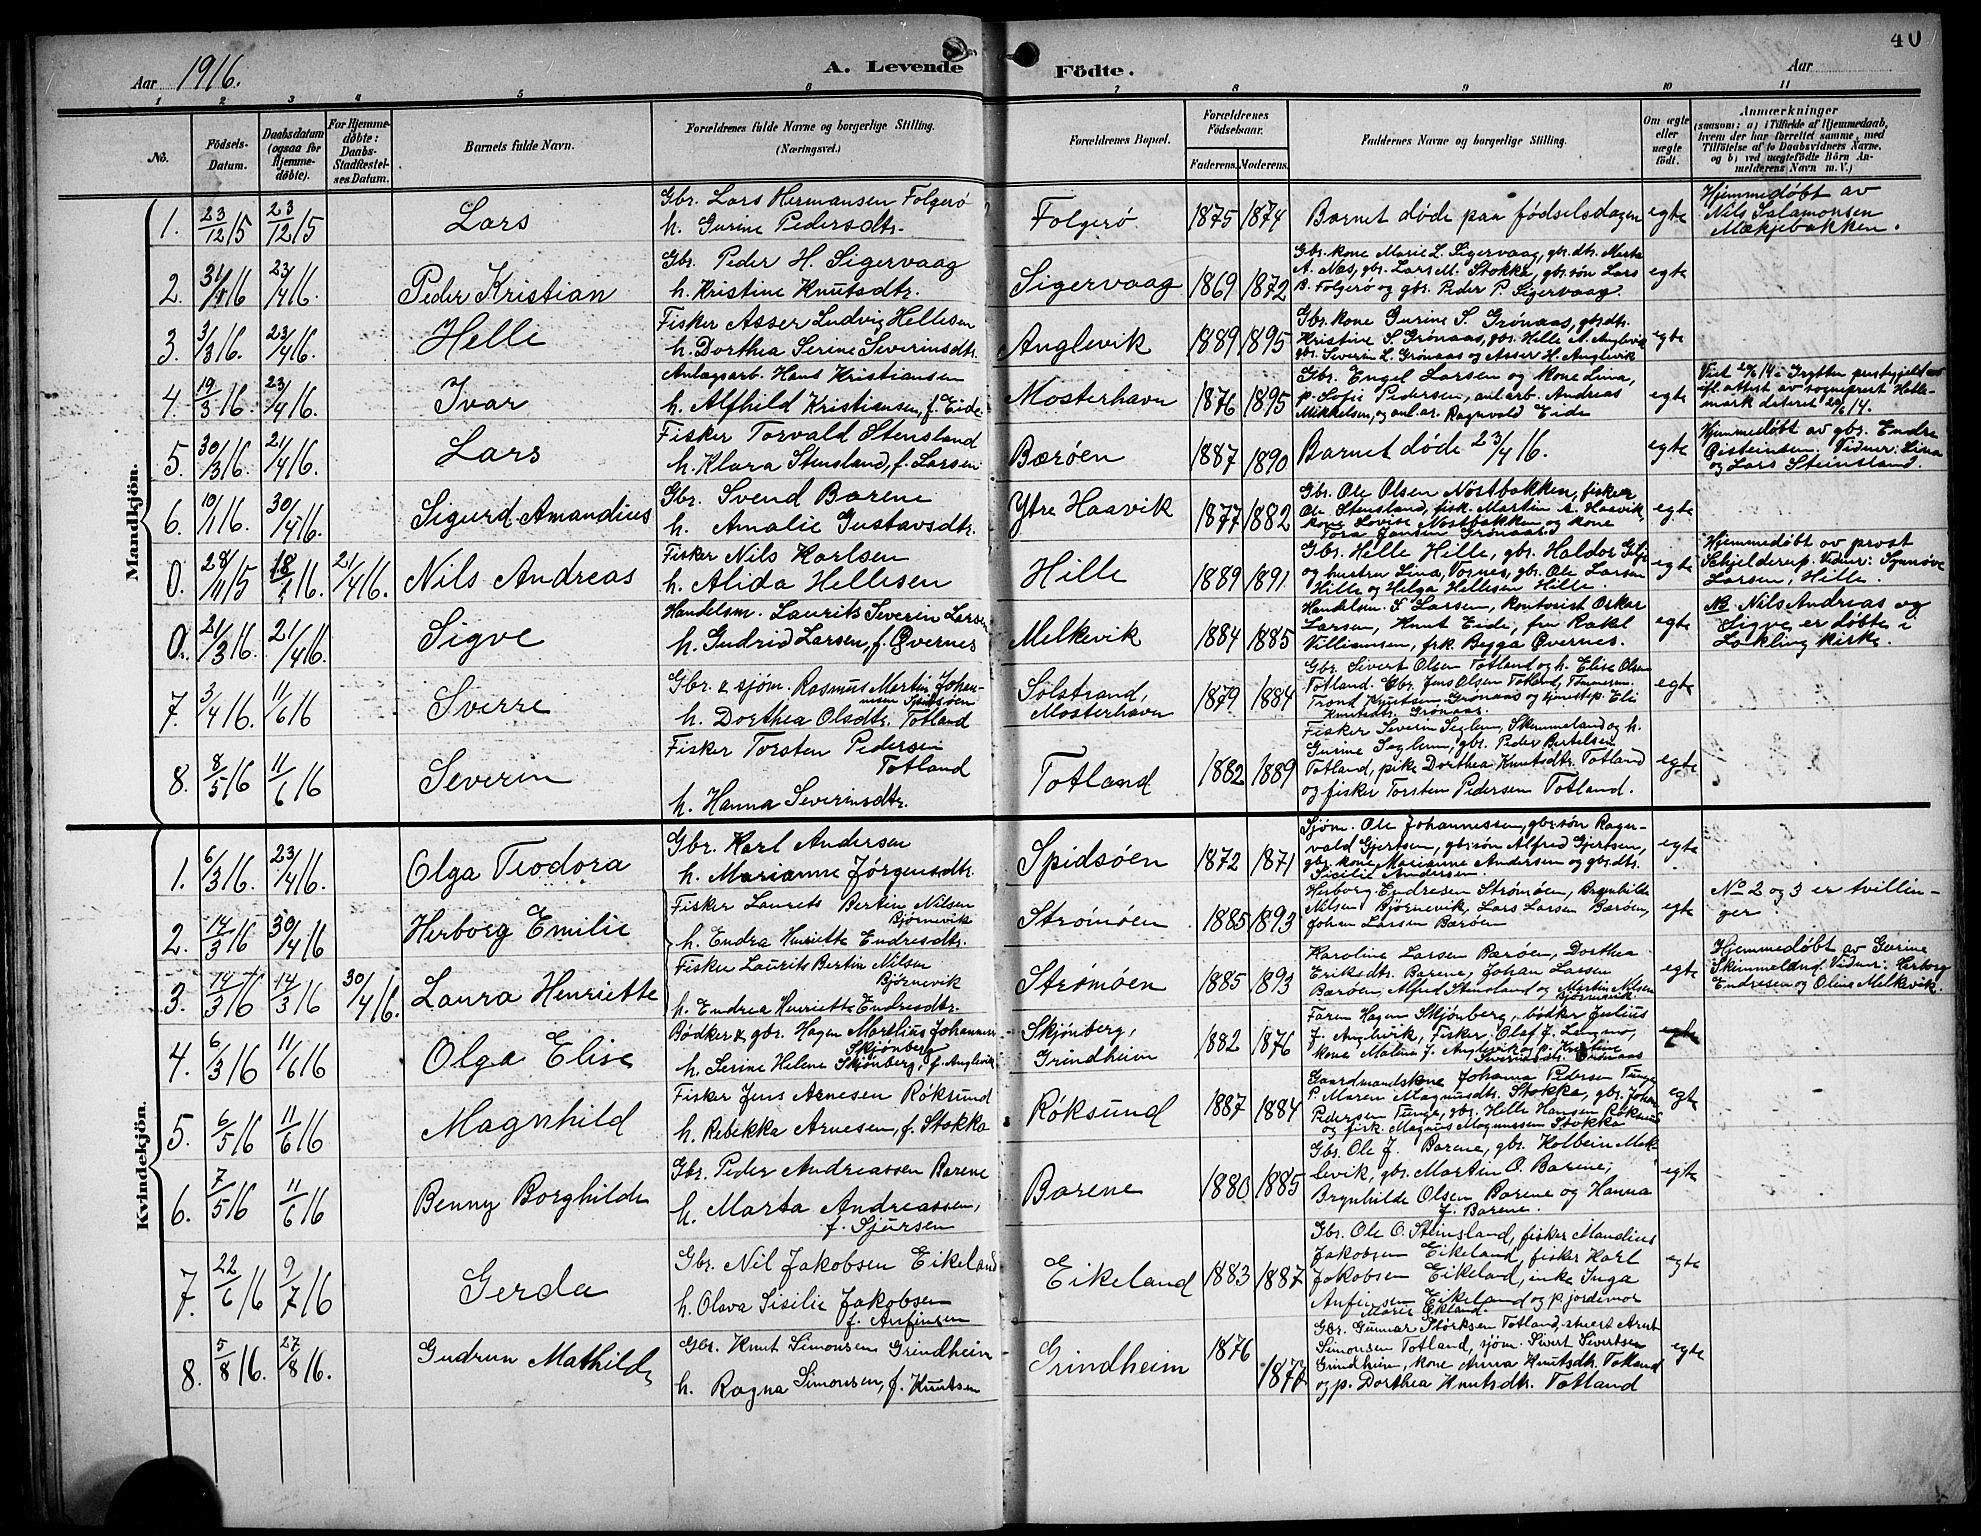 40
Aar 1916.
A. Levende
Födte.
Aar
1 2 3 4 5 6 7 8 9 10 11
No.
Födsels-Datum.
Daabsdatum (ogsaa for Hjemme-döbte).
For Hjemme-döbte: Daabs-Stadfæstel-ses Datum.
Barnets fulde Navn.
Forældrenes fulde Navne og borgerlige Stilling. (Næringsvei.)
Forældrenes Bopæl.
Forældrenes Födselsaar.
Faderens. Moderens.
Faddernes Navne og borgerlige Stilling.
Om ægte eller uægte födt.
Anmærkninger
(saasom: a) i Tilfælde af Hjemmedaab, hvem der har forrettet samme, med Tilföielse af to Daabsvidners Navne, og b) ved uægtefödte Börn Anmelderens Navn m. V.)
Mandkjön.
1. 23/12 15 23/12 15 Lars
Gbr. Lars Hermansen Folgerö
h. Gurine Pedersdtr.
Folgerö 1875 1874 Barnet döde paa födselsdagen egte
Hjemmedöbt av
Nils Salamonsen
Mækjebakken.
2. 31/1 16 23/4 16. Peder Kristian
Gbr. Peder H. Sigervaag
h. Kristine Knutsdtr.
Sigervaag 1869 1872
Gbr. kone Marie L. Sigervaag, gbr. dtr. Marta
A. Næs, gbr. Lars M. Stokka, gbr. sön Lars
B. Folgerö og gbr. Peder P. Sigervaag.
egte
3. 3/3 16. 23/4 16. Helle
Fisker Asser Ludvig Hellisen
h. Dorthea Serine Severinsdtr.
Anglevik 1889 1895
Gbr. kone Gurine S. Grönaas, gbr. dtr.
Kristine S. Grönaas, gbr. Helle A. Anglevik
gbr. Severin L. Grönaas og Asser H. Anglevik
egte
4. 19/3 16. 23/4 16. Ivar
Anlægsarb. Hans Kristiansen
h. Alfhild Kristiansen, f. Eide
Mosterhavn 1876 1895
Gbr. Engel Larsen og kone Lina,
p. Sofie Pedersen, anl. arb. Andreas
Mikkelsen, og anl. ar. Ragnvald Eide
egte
5. 30/3 16. 24/4 16. Lars
Fisker Torvald Stensland
h. Klara Stensland, f. Larsen
Bæröen 1887 1890 Barnet döde 23/4 16. egte
Hjemmedöbt av gbr. Endre
Øisteinsen. Vidner: Lina
og Lars Steinsland.
6. 10/1 16. 30/4 16. Sigurd Amandius
Gbr. Svend Barene
h. Amalie Gustavsdtr.
Ytre Haavik 1877 1882
Gbr. Ole Olsen Nostbakken, fisker
Ole Stensland, fisk. Martin A. Haavik,
kone Lovise Nostbakken og kone
Tora Jansen Grönaas.
egte
0. 28/11 15 18/1 16. 21/4 16. Nils Andreas
Fisker Nils Karlsen
h. Alida Hellisen
Hille 1889 1891
Gbr. Helle Hille, gbr. Haldor
og hustru Lina, Vornes, gbr. Ole Larsen
Hille og Helga Hellisen Hille.
egte
Hjemmedöbt av prost
Schjelderup. Vidner: Synnöve
Larsen, Hille.
0. 21/3 16. 21/4 16. Sigve
Handelsm. Laurits Severin Larsen
h. Gudrid Larsen, f. Øvernes
Melkevik 1884 1885
Handelsm. S. Larsen, kontorist Oskar
Larsen, Knut Eide, fru Rakel
Villiamsen, frk. Bygga Øvernes.
egte
NB. Nils Andreas og
Sigve er döbte i
Lökling kirke.
7. 3/4 16. 11/6 16 Sverre
Gbr. & sjöm. Rasmus Martin Johan-
nesen Spidsöen
h. Dorthea Olsdtr. Totland
Solstrand,
Mosterhavn 1879 1884
Gbr. Sivert Olsen Totland og h. Elise Olsen
Totland. Gbr. Jens Olsen Totland, Tömmerm.
Trond Knutsen Grönaas og tjenestep. Eli
Knutsdtr. Grönaas.
egte
8. 8/5 16 11/6 16 Severin
Fisker Torsten Pedersen
Totland
h. Hanna Severinsdtr.
Totland 1882 1889
Fisker Severin Seglem, Skimmeland og h.
Gurine Seglem, gbr. Peder Bertelsen
Totland, pike Dorthea Knutsdtr. Totland
og fisker Torsten Pedersen Totland.
egte
Kvindekjön.
1. 6/3 16. 23/4 16. Olga Teodora
Gbr. Karl Andersen
h. Marianne Jörgensdtr.
Spidsöen 1872 1871
Sjöm. Ole Johannessen, gbr. sön Ragn-
vald Gjertsen, gbr. sön Alfred Gjertsen,
gbr. kone Marianne Andersen og gbr. dtr.
Sicilie Andersen.
egte
2. 14/3 16 30/4 16 Herborg Emilie
Fisker Laurits Bertin Nilsen
Björnevik
h. Endra Henriette Endresdtr.
Strömöen 1885 1893
Herborg Endresen Strömöen, Brynhilde
Nilsen Björnevik, Lars Larsen Bæröen,
Johan Larsen Bæröen
egte
No 2 og 3 er tvillin-
ger
3. 14/3 16 14/3 16 30/4 16. Laura Henriette
Fisker Laurits Bertin Nilsen
Björnevik
h. Endrea Henriette Endresdtr.
Strömöen 1885 1893
Karoline Larsen Bæröen, Dorthea
Eriksdtr. Barene, Johan Larsen
Bæröen, Alfred Stensland og Martin Nilsen
Björnevik
egte
Hjemmedöbt av Gurine
Skimmelnd. Vidner: Herborg
Endresen og Oline Melkevik.
4. 6/3 16 11/6 16 Olga Elise
Bödker & gbr. Hagen Martlius Johannes
Skjönberg
h. Serine Helene Skjönberg, f. Anglevik
Skjönberg,
Grindheim 1882 1876
Faren Hagen Skjönberg, bödker Julius
J. Anglevik, Fisker Olaf J.
kone Maline J. Anglevik og p.
egte
5. 6/5 16 11/6 16 Magnhild
Fisker Jens Arnesen Röksund
h. Rebekka Arnesen, f. Stokka
Röksund 1887 1884
Gaardmandskone Johanna Pedersen Tunge
P. Maren Magnusdtr. Stokka, gbr. Johan
Pedersen Tunge, gbr. Helle Hansen Röksund
og fisk. Magnus Magnussen Stokka
egte
6. 7/5 16 11/6 16 Benny Borghilde
Gbr. Peder Andreassen Barene
h. Marta Andreassen,
f. Sjursen
Barene 1880 1885
Gbr. Ole J. Barene, gbr. Kolbein Mæk-
levik, gbr. Martin O. Barene,
Brynhilde Olsen Barene og Hanna
J. Barene.
egte
7. 22/6 16 9/7 16 Gerda
Gbr. Nil Jakobsen Eikeland
h. Olava Sisilie Jakobsen
f. Anfinsen
Eikeland 1883 1887
Gbr. Ole O. Stensland, fisker Mandius
Jakobsen Eikeland, fisker Karl
Jakobsen Eikeland, enke Inga
Anfinsen Eikeland og p. jordemor
Marie Økland.
egte
8. 5/8 16. 27/8 16. Gudrun Mathilde
Gbr. Knut Simonsen Grindheim
h. Ragna Simonsen, f. Knutsen
Grindheim 1876 1878
Gbr. Gunnar Störksen Totland, stuert Arnt
Simonsen Totland, sjöm. Sivert Sivertsen
Grindheim, kone Anna Knutsdtr. Totland
og p. Dorthea Knutsdtr. Totland
egte